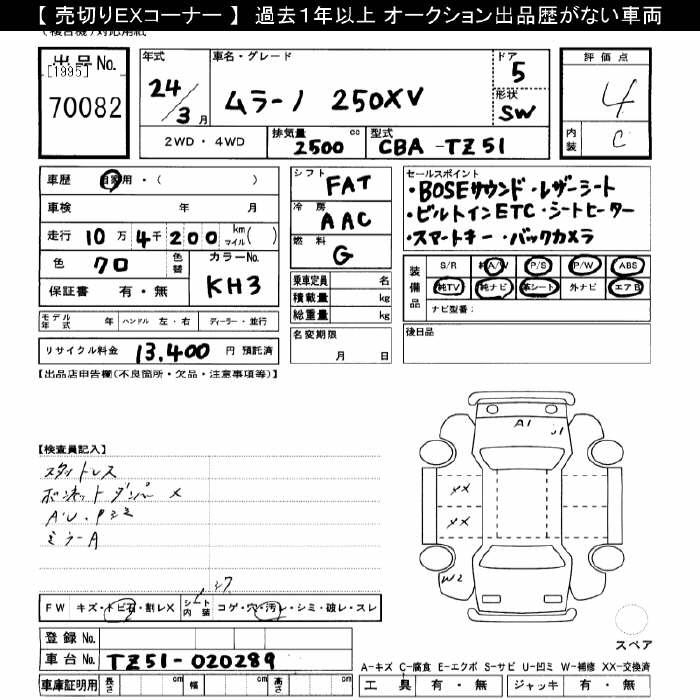 【 売切りEXコーナー 】 過去1年以上 オークション出品歴がない車両
出品No.
[1995]
70082
年式
24/3月
車名・グレード
ムラーノ 250XV
ドア
5
形状
SW
2WD・4WD
排気量
2500 cc
型式
CBA-TZ51
評価点
4
内装
C
車歴 自家用・( )
車検 年 月
走行 10万4千200 km マイル( )
色 クロ
色替
カラーNo.
KH3
保証書 有・無
シフト
FAT
冷房
AAC
燃料
G
乗車定員 名
積載量 kg
総重量 kg
セールスポイント
・BOSEサウンド・レザーシート
・ビルトインETC・シートヒーター
・スマートキー・バックカメラ
装備品
S/R 純A/W P/S P/W ABS
純TV 純ナビ 革シート 外ナビ エアB
ナビ型番:
モデル年式 年 ハンドル 左・右 ディーラー・並行
リサイクル料金 13,400 円 預託済
名変期限
月 日
後日品
【出品店申告欄(不良箇所・欠品・注意事項等)】
【検査員記入】
スタットレス
ボンネットダンパー ×
AU・Pシミ
ミラーA
A1
XX
XX
W2
FW キズ・トビ石・割レX
シート内装 コゲ・穴・汚レ・シミ・破レ・スレ
スペア
登録No.
車台No. TZ51-020289
A-キズ C-腐食 E-エクボ S-サビ U-凹ミ W-補修 XX-交換済
車庫証明用 長さ cm 幅 cm 高さ cm
工具 有・無 ジャッキ 有・無